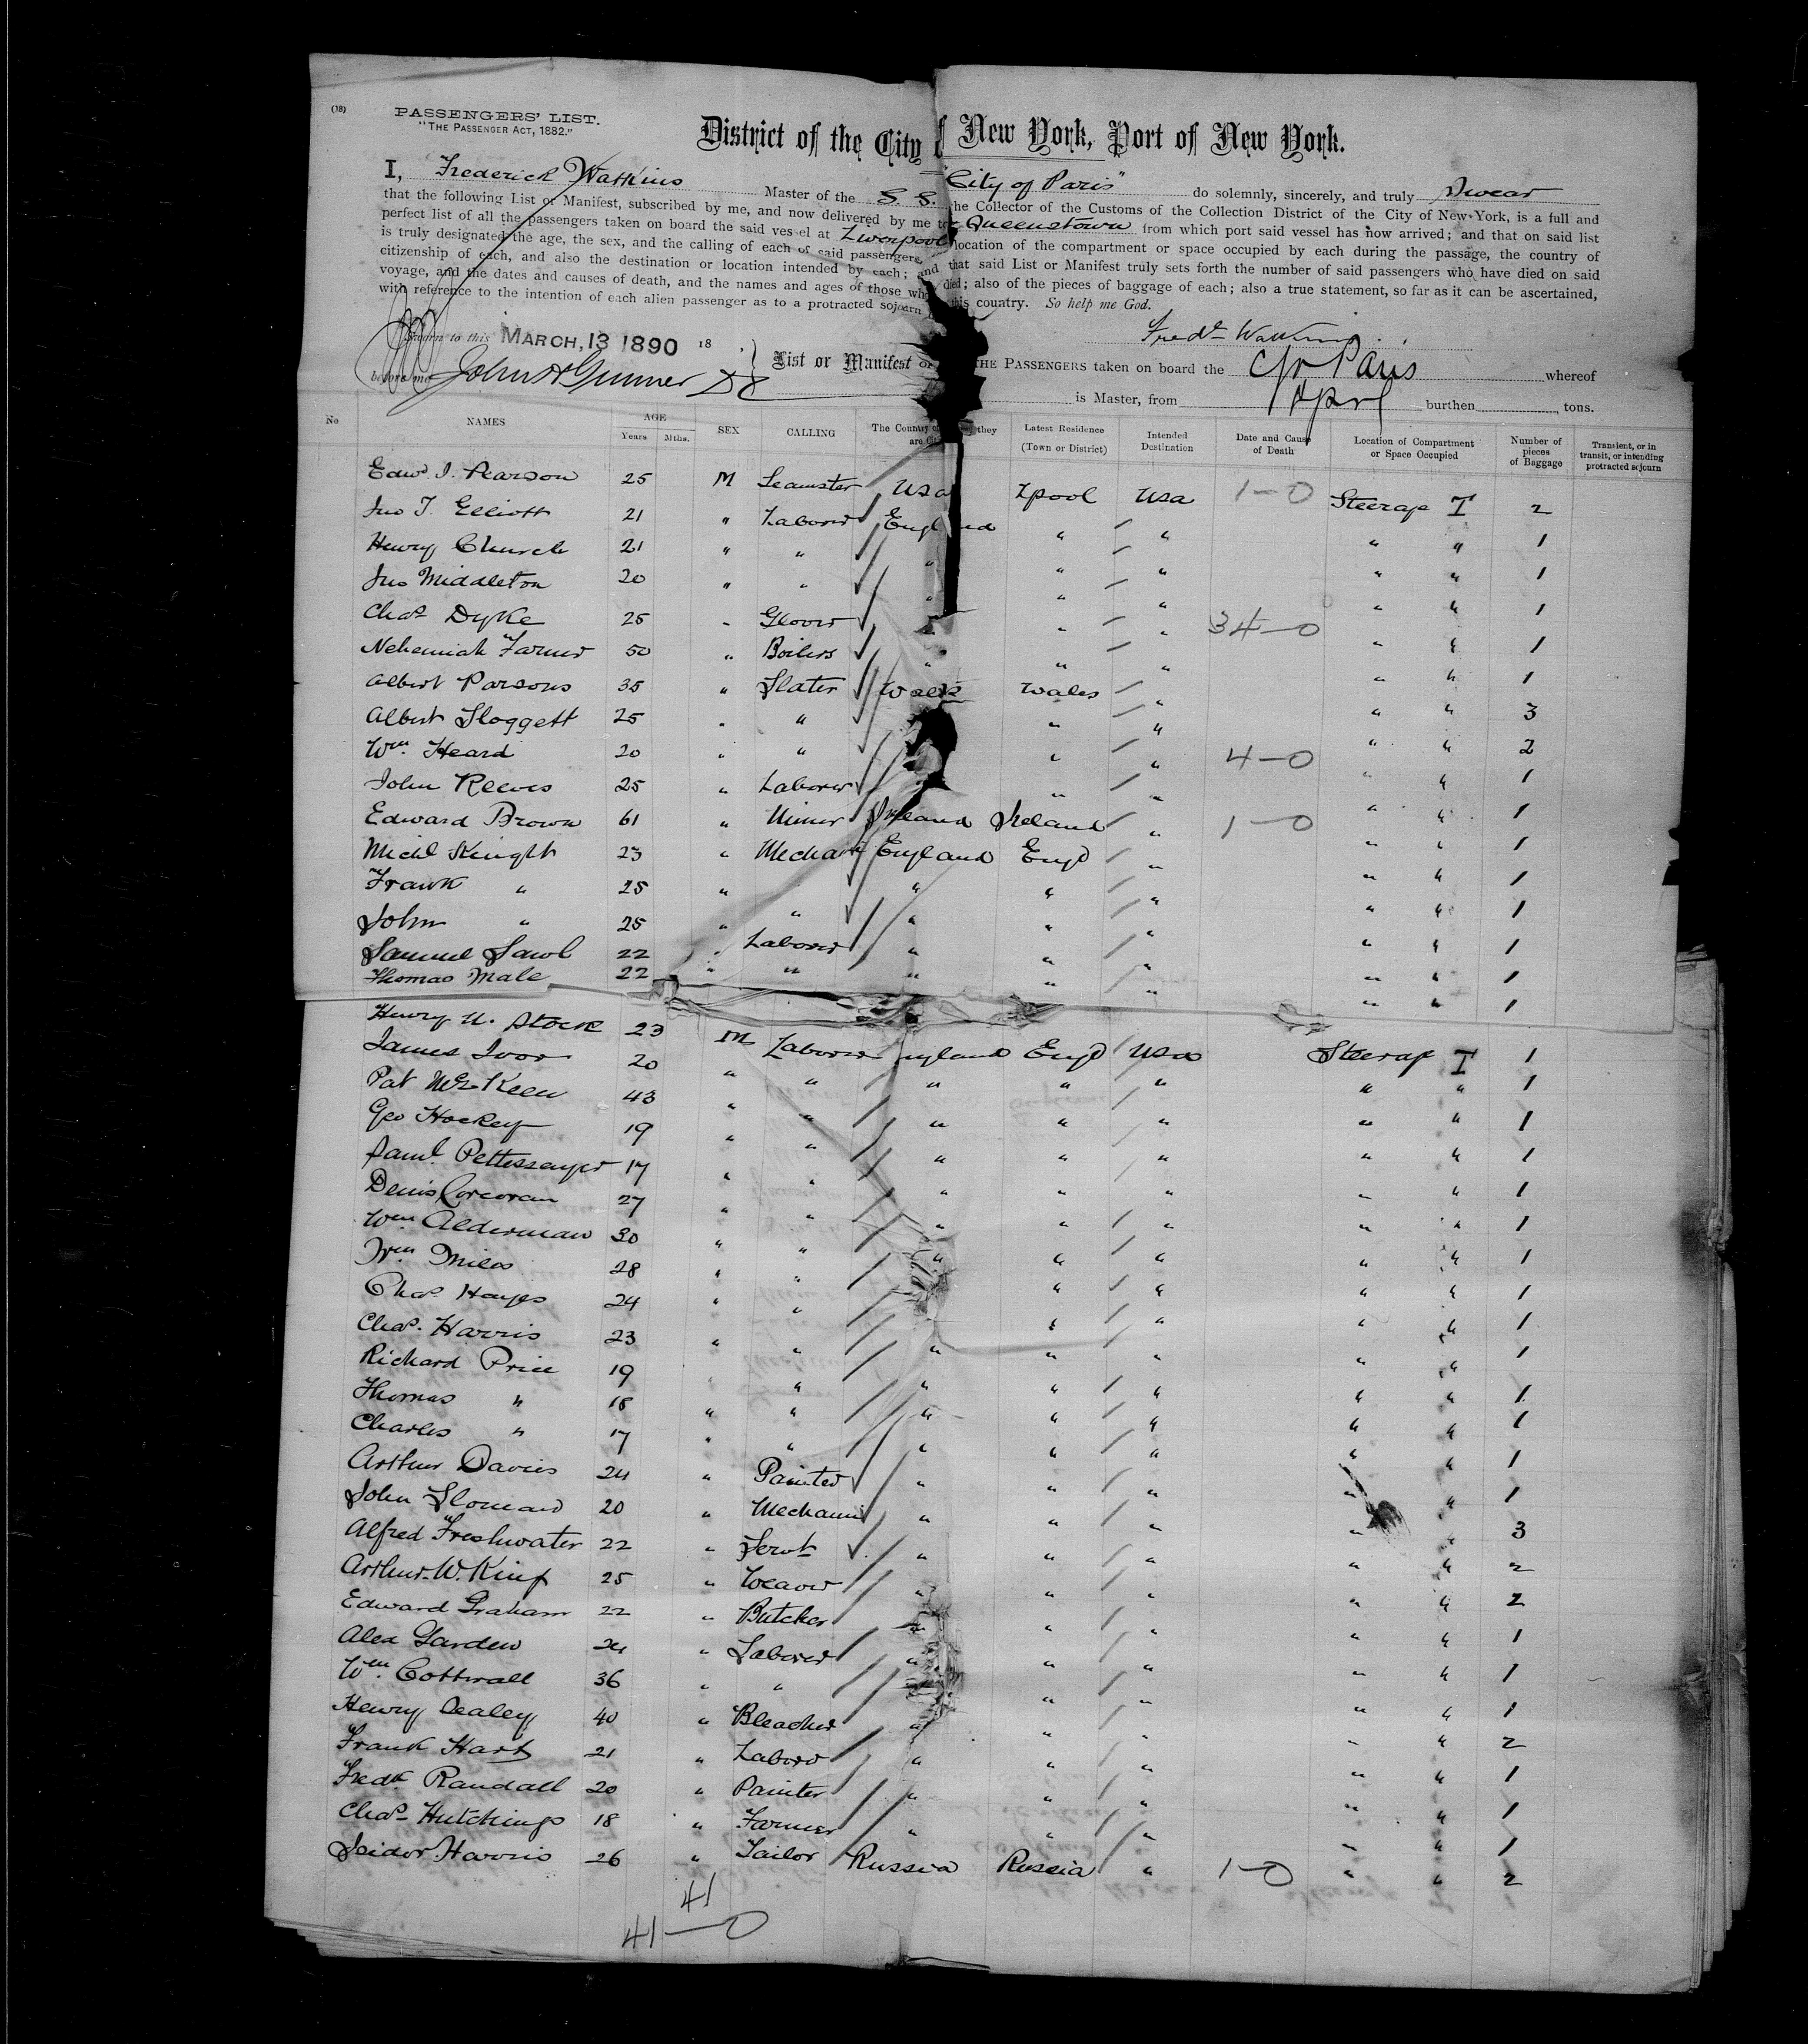 (18)
PASSENGERS' LIST.
"THE PASSENGER ACT, 1882."
District of the City of New York, Port of New York.
I, Frederick Watkins Master of the S. S. "City of Paris" do solemnly, sincerely, and truly Swear
that the following List or Manifest, subscribed by me, and now delivered by me to the Collector of the Customs of the Collection District of the City of New York, is a full and
perfect list of all the passengers taken on board the said vessel at Liverpool Queenstown from which port said vessel has now arrived; and that on said list
is truly designated the age, the sex, and the calling of each of said passengers, location of the compartment or space occupied by each during the passage, the country of
citizenship of each, and also the destination or location intended by each; and that said List or Manifest truly sets forth the number of said passengers who have died on said
voyage, and the dates and causes of death, and the names and ages of those who died; also of the pieces of baggage of each; also a true statement, so far as it can be ascertained,
with reference to the intention of each alien passenger as to a protracted sojourn this country. So help me God.
Sworn to this MARCH, 13 1890 18 Fredk Watkins
before me John H Gunner List or Manifest OF THE PASSENGERS taken on board the C/o Paris whereof
is Master, from burthen tons.
No NAMES AGE Years Mths. SEX CALLING The Country of they are Latest Residence (Town or District) Intended Destination Date and Cause of Death Location of Compartment or Space Occupied Number of pieces of Baggage Transient, or in transit, or intending protracted sojourn
Edwd J. Pearson 25 M Teamster Usa Lpool Usa 1-0 Steerage I 2
Jno T. Elliott 21 " Laborer England " " " " 1
Henry Church 21 " " " " " " " 1
Jno Middleton 20 " " " " " " " 1
Chas Dyke 25 " Glover " " " 34-0 " " 1
Nehemiah Farmer 50 " Boilers " " " " " 1
Albert Parsons 35 " Slater Wales Wales " " " 3
Albert Sloggett 25 " " " " " " 2
Wm. Heard 20 " " " " 4-0 " " 1
John Reeves 25 " Laborer " " " " 1
Edward Brown 61 " Miner Ireland Ireland " 1-0 " " 1
Michl Knight 23 " Mechanic England Engd " " " 1
Frank " 25 " " " " " " 1
John " 25 " " " " " " " 1
Samuel Sawl 22 " Laborer " " " " " 1
Thomas Male 22 " " " " " " " 1
Henry U. Stock 23 M Laborer England Engd Usa Steerage I 1
James Ivor 20 " " " " " " " 1
Pat McKeen 43 " " " " " " " 1
Geo Hockey 19 " " " " " " " 1
Saml. 17 " " " " " " " 1
Denis Corcoran 27 " " " " " " " 1
Wm Alderman 30 " " " " " " " 1
Wm. Miles 28 " " " " " " 1
Chas. Hayes 24 " " " " " " 1
Chas. Harris 23 " " " " " " " 1
Richard Price 19 " " " " " " 1
Thomas " 18 " " " " " " " 1
Charles " 17 " " " " " " " 1
Arthur Davies 24 " Painter " " " " " 1
John Sloman 20 " Mechanic " " " " " 3
Alfred Freshwater 22 " Servt " " " " " 2
Arthur. W. King 25 " Weaver " " " " " 2
Edward Graham 22 " Butcher " " " " " 1
Alex Garden 24 " Laborer " " " " " 1
Wm. Cottrall 36 " " " " " " 1
Henry Sealey 40 " Bleacher " " " " " 2
Frank Hart 21 " Laborer " " " " " 1
Fredk Randall 20 " Painter " " " " " 1
Chas Hutchings 18 " Farmer " " " " " 1
Isidor Harris 26 " Tailor Russia Russia " 1-0 " " 2
41
41-0